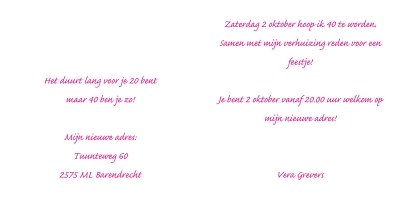 Het duurt lang voor je 20 bent
maar 40 ben je zo!
Mijn nieuwe adres:
Tuunteweg 60
2575 ML Barendrecht
Zaterdag 2 oktober hoop ik 40 te worden.
Samen met mijn verhuizing reden voor een
feestje!
Je bent 2 oktober vanaf 20.00 uur welkom op
mijn nieuwe adres!
Vera Grevers